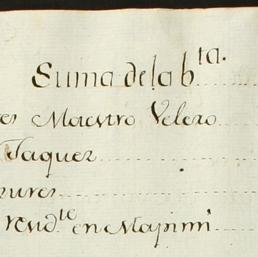 Suma de la b^ta.
es Maestro Velero
Jaquez
ures
rend^te en Mapimi